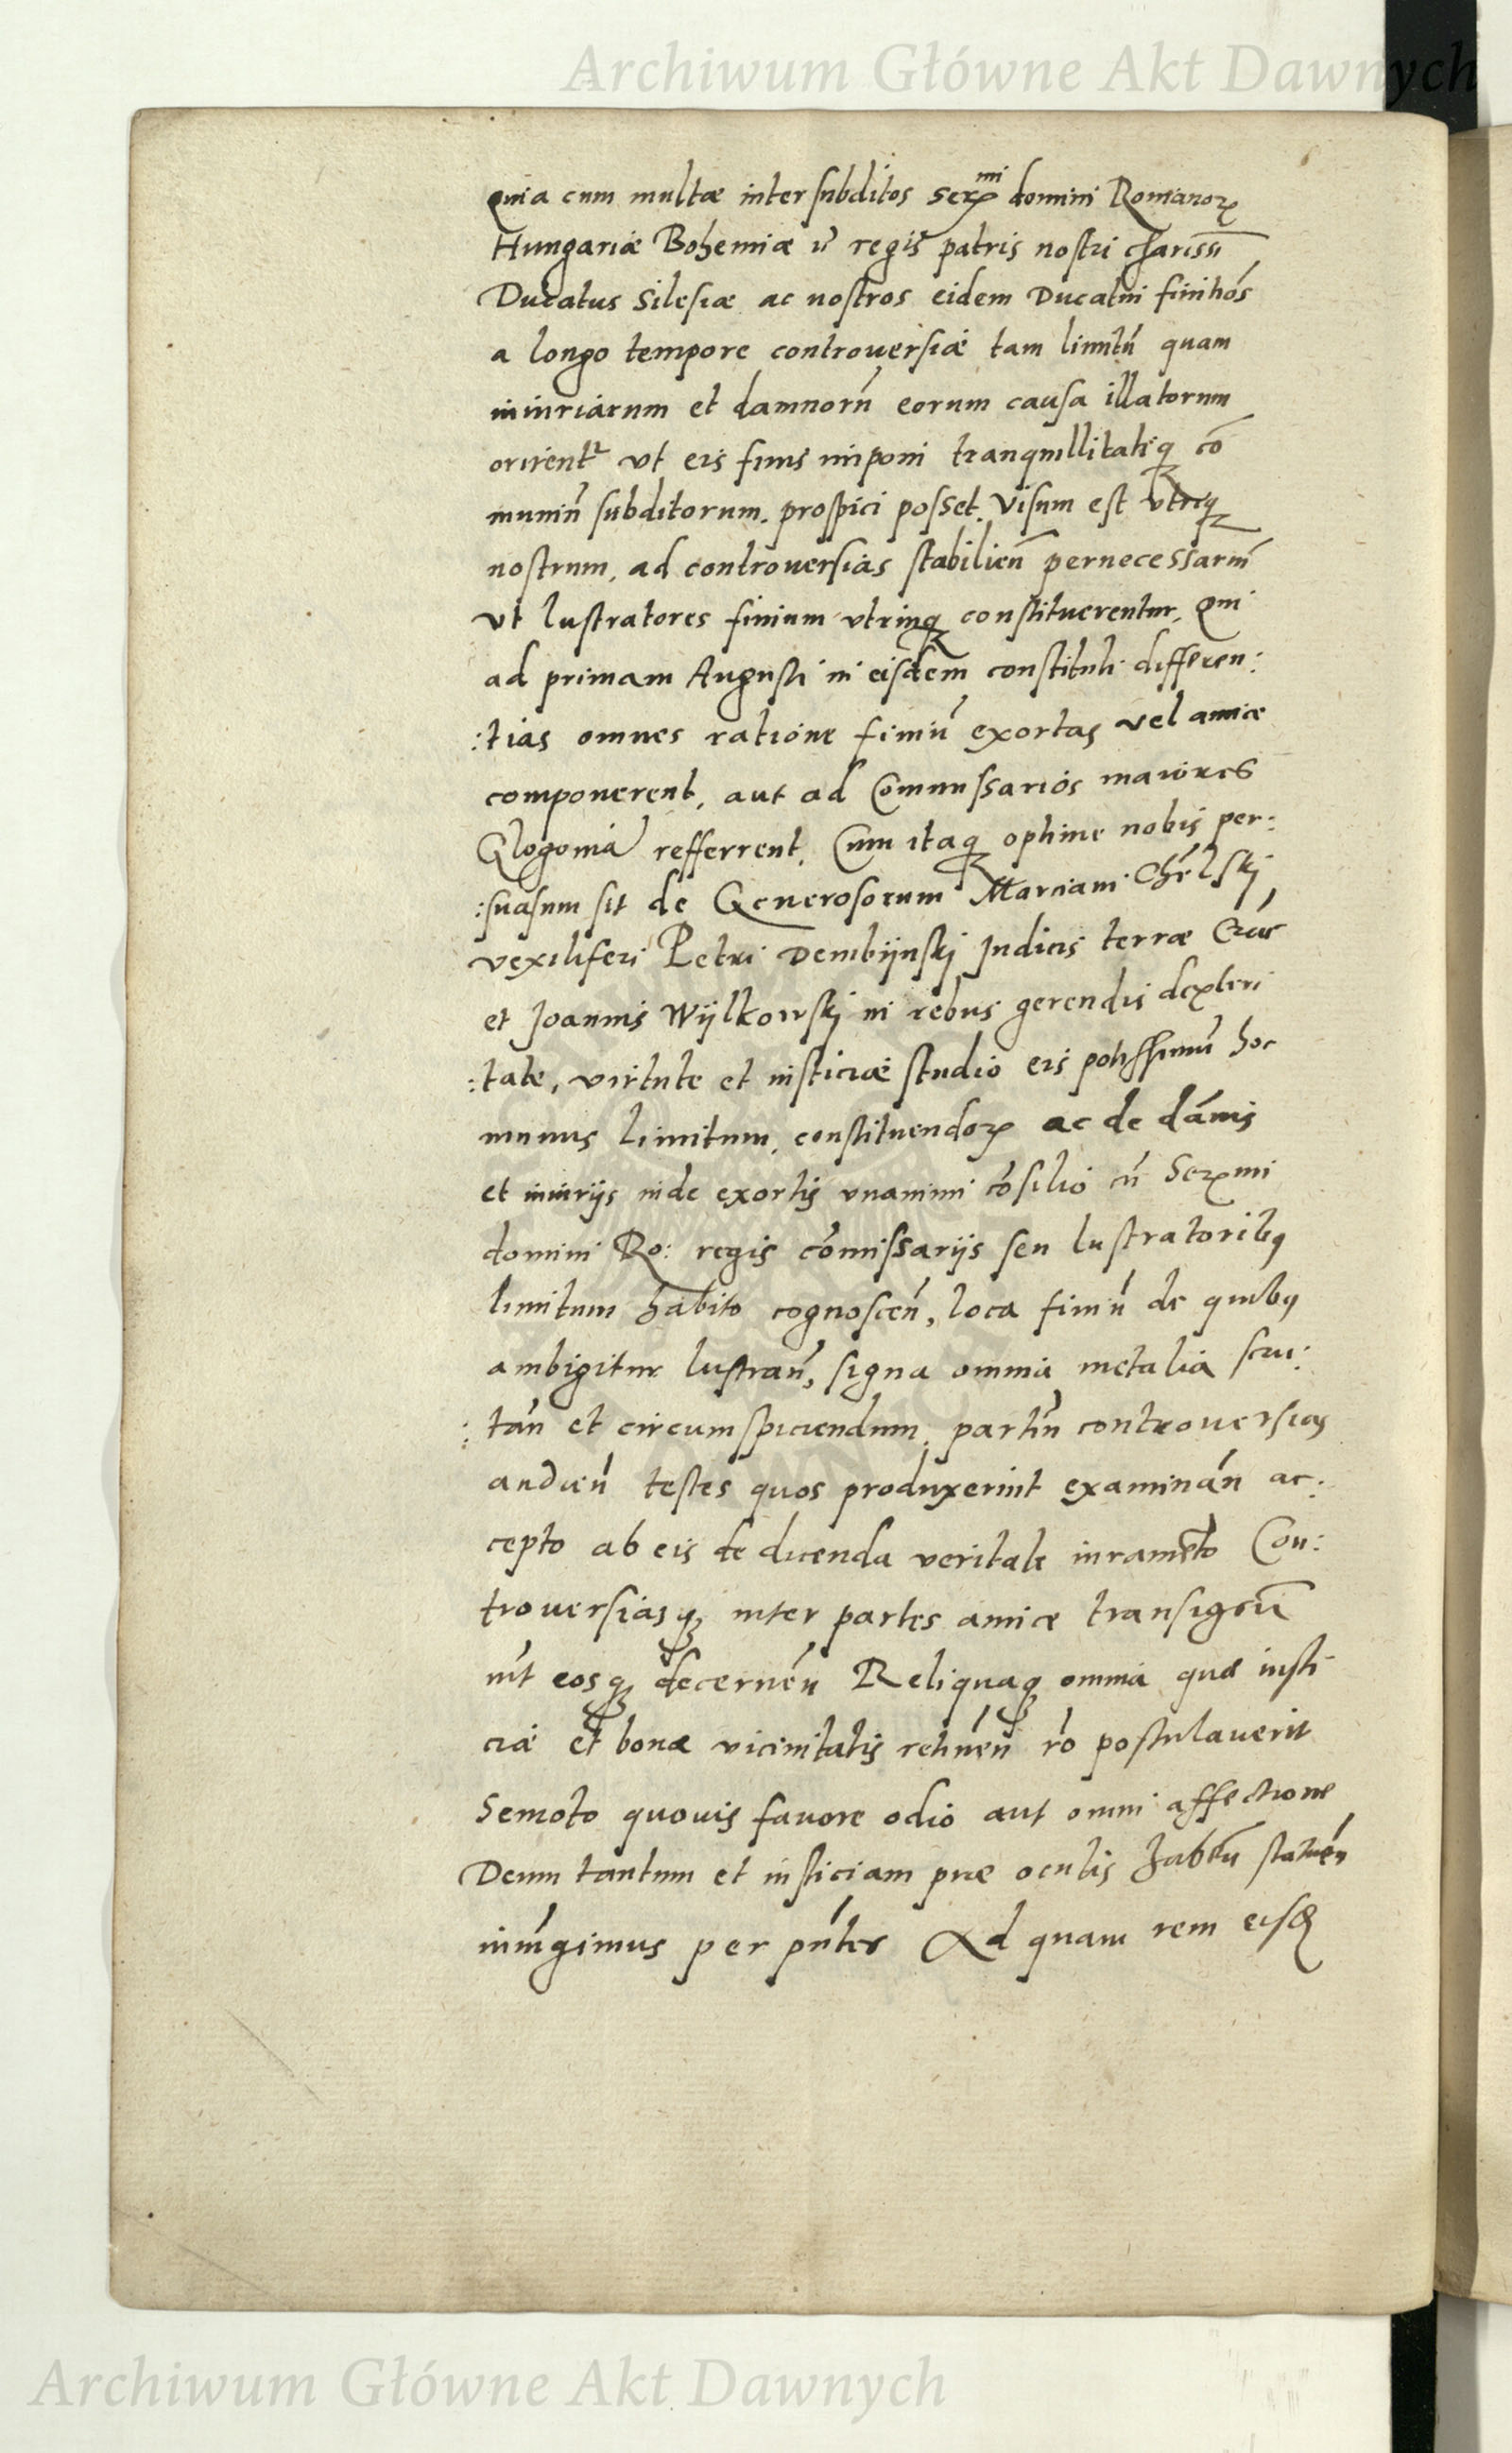 Archiwum Główne Akt Dawnych
quia cum multæ inter subditos Serꝫmi domini Romanorꝫ
Hungariæ Bohemiæ ꝛc̄ regis patris nostri charissī
Ducatus Silesiæ ac nostros eidem Ducatui finitiōs
a longo tempore controversiæ tam limitū quam
iniuriarum et damnorū eorum causa illatorum
orirent᷑ vt eis finis imponi tranquillitatiqꝫ cō
muniū subditorum, prospici posset. Visum est vtriqꝫ
nostrum, ad controuersias stabiliēn pernecessariū
vt lustratores finium vtrinqꝫ constituerentur, Qui
ad primam Augusti in eisdem constituti differen:
:tias omnes ratione finiū exortas vel amice
componerent, aut ad Comissarios maiores
Glogoniā refferrent, Cum itaqꝫ optime nobis per:
:suasum sit de Generosorum Marciani Chełski
vexiliferi Petri Dembijnskij Judicis terræ
et Joannis Wijlkowskij in rebus gerendis dexteri
:tate, virtute et iusticiæ studio eis potissimū hoc
munus limitum, constituendorꝫ ac de dānis
et iniurijs inde exortis vnanimi cōsilio cū Serꝫmi
domini Ro: regis cōmissarijs seu lustratoribꝫ
limitum habito cognoscēn, loca finiū de quibꝫ
ambigitur lustrān, signa omnia metalia scru:
:tān et circumspiciendum, partiū controuersias
audiēn testes quos produxerint examinān ac:
cepto ab eis de dicenda veritate iuramēto Con:
trouersiasqꝫ inter partes amice transigēn
eosqꝫ decernēn Reliquaqꝫ omnia quæ iusti
ciæ et bonæ vicinitatis retinēn rō postulauerit
Semoto quouis fauore odio aut omni affectione
Deum tantum et iusticiam præ oculis habēn statuēn
iniūgimus per pn̄tes Ad quam rem eisdꝫ
Archiwum Główne Akt Dawnych